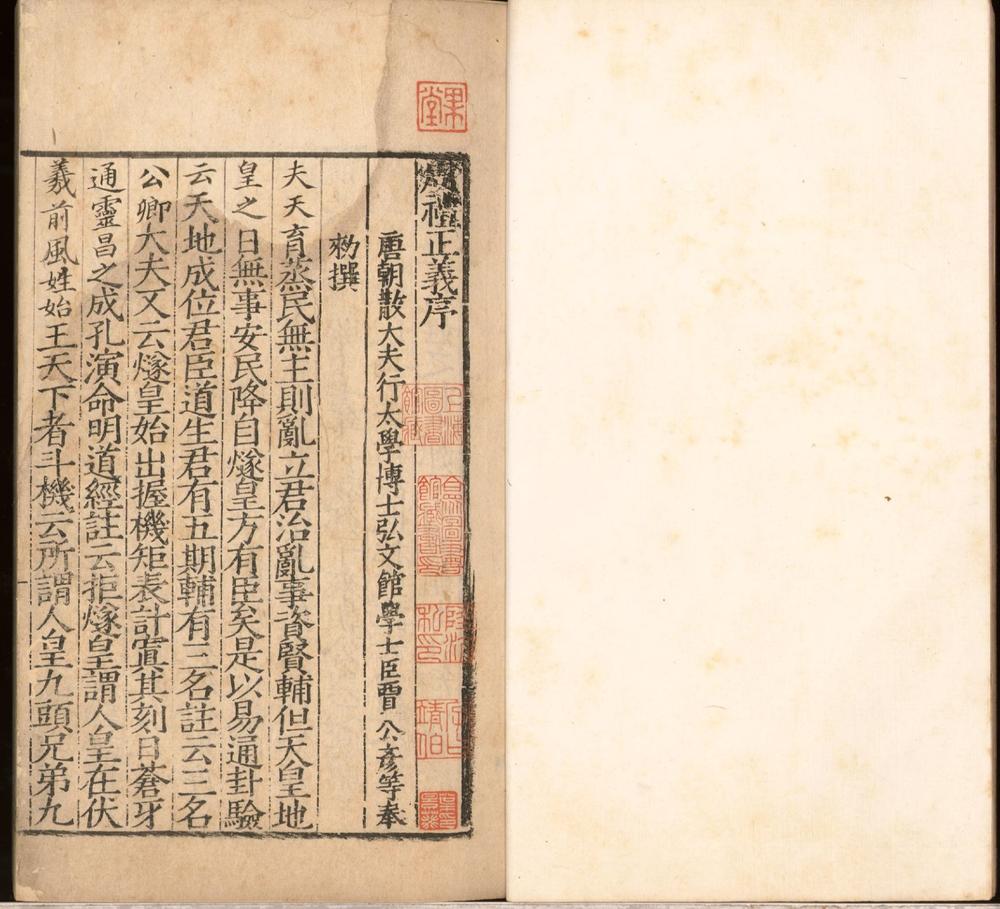 禮正義序
唐朝散大夫行太學博士弘文館學士臣賈公彥等奉
勑撰
夫天育蒸民無主則亂立君治亂事資賢輔但天皇地
皇之日無事安民降自燧皇方有臣矣是以易通卦驗
云天地成位君臣道生君有五期輔有三名註云三名
公卿大夫又云燧皇始出握機矩表計寘其刻曰蒼牙
通靈昌之成孔演命明道經註云拒燧皇謂人皇在伏
羲前風姓始王天下者斗機云所謂人皇九頭兄弟九